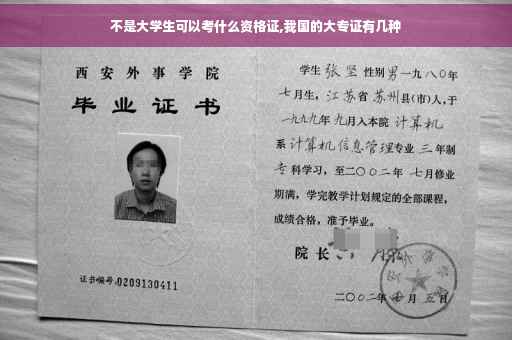 不是大学生可以考什么资格证,我国的大专证有几种
西安外事学院
毕业证书
证书编号:0209130411
学生 张坚 性别 男 一九八〇年
七月生，江苏省 苏州县(市)人,于
一九九九年 九月入本院 计算机
系 计算机信息管理专业 三 年制
专科学习，至二〇〇二年 七月修业
期满，学完教学计划规定的全部课程，
成绩合格，准予毕业。
院长
二〇〇二年 七 月 五 日